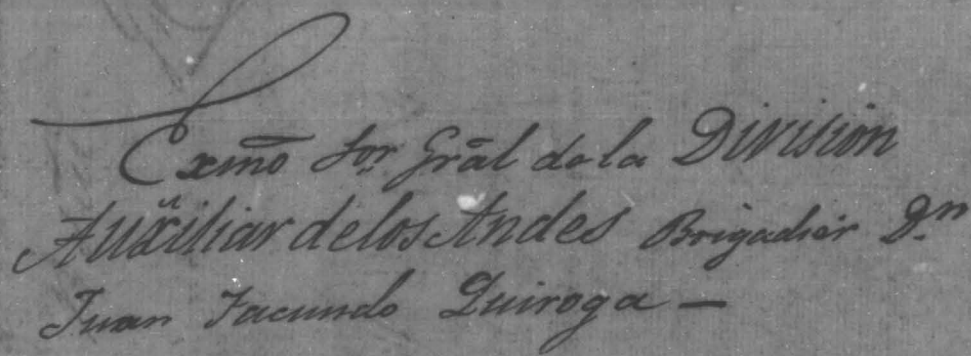 Exmō Sor. Grāl de la Division
Auxiliar de los Andes Brigadier Dn.
Juan Facundo Quiroga —